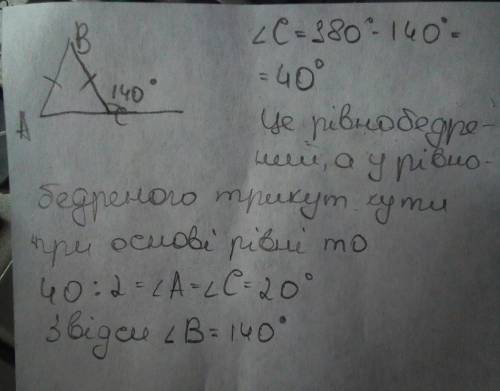 B
140°
A
C
∠C=180°-140°=
=40°
Це рівнобедре-
ний, а у рівно-
бедреного трикут. кути
при основі рівні то
40:2=∠A=∠C=20°
Звідси ∠B=140°